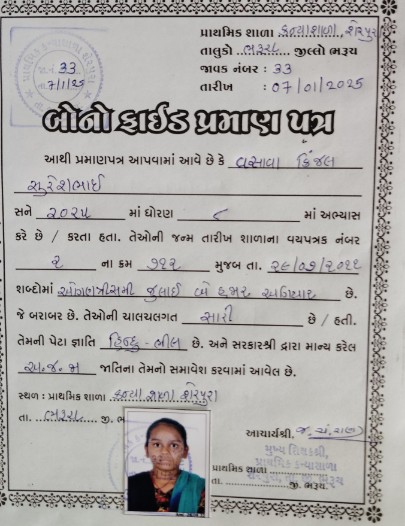 પ્રાથમિક શાળા કન્યાશાળા, શેરપુરા
તાલુકો ભરૂચ જીલ્લો ભરૂચ
જાવક નંબર : ૩૩
તારીખ : 07/01/2025
૩૩
7/1/25
બોનોફાઈડ પ્રમાણ પત્ર
આથી પ્રમાણપત્ર આપવામાં આવે છે કે વસાવા કિંજલ
સુરેશભાઈ
સને ૨૦૨૫ માં ધોરણ ૮ માં અભ્યાસ
કરે છે / કરતા હતા. તેઓની જન્મ તારીખ શાળાના વયપત્રક નંબર
૨ ના ક્રમ ૧૨૨ મુજબ તા. ૨૯/૦૭/૨૦૧૧
શબ્દોમાં ઓગણત્રીસમી જુલાઈ બે હજાર અગિયાર છે.
જે બરાબર છે. તેઓની ચાલચલગત સારી છે / હતી.
તેમની પેટા જ્ઞાતિ હિન્દુ - ભીલ છે. અને સરકારશ્રી દ્વારા માન્ય કરેલ
અ.જ.જા જાતિના તેમનો સમાવેશ કરવામાં આવેલ છે.
સ્થળ : પ્રાથમિક શાળા કન્યા શાળા શેરપુરા
તા. ભરૂચ જી. ભ
આચાર્યશ્રી.
મુખ્ય શિક્ષકશ્રી,
પ્રાથમિક શાળા પ્રાથમિક કન્યાશાળા
તા. શેરપુરા, જી. ભરૂચ